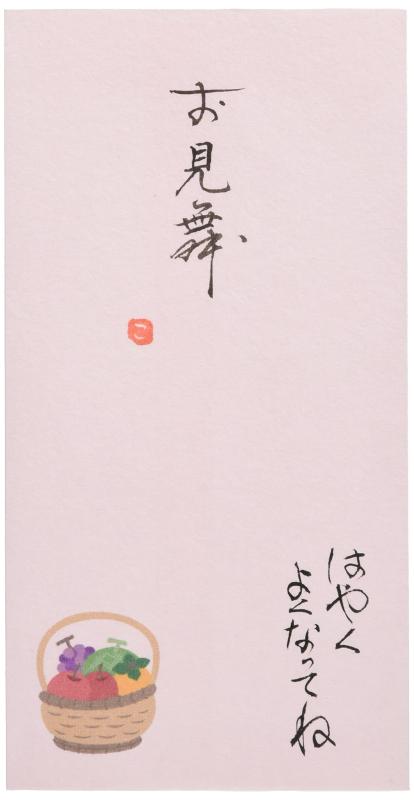 お見舞
こ
はやく
よくなってね